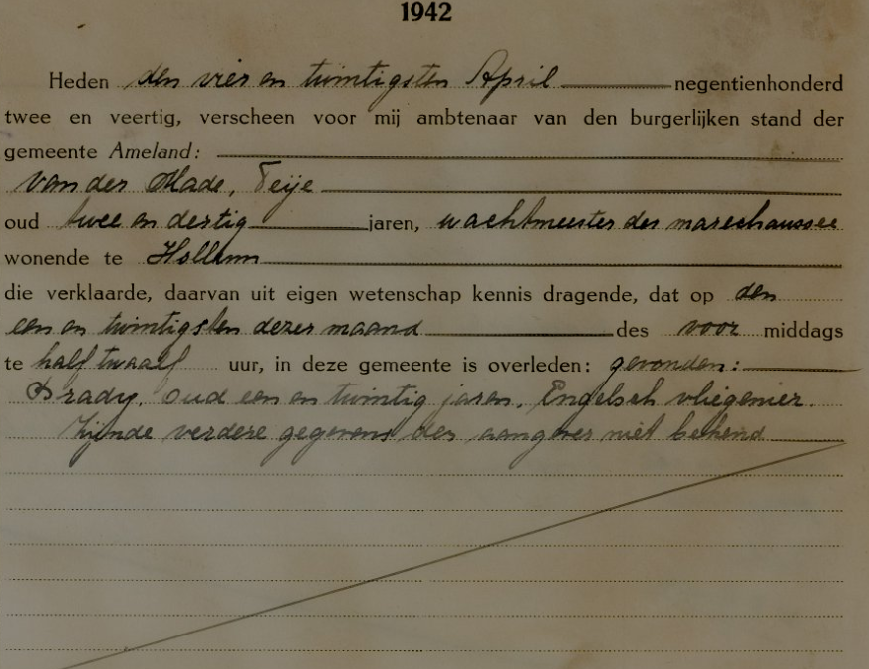 1942
Heden den vier en twintigsten April negentienhonderd
twee en veertig, verscheen voor mij ambtenaar van den burgerlijken stand der
gemeente Ameland:
van der Made, Teije
oud twee en dertig jaren, wachtmeester der marechaussee
wonende te Hollum
die verklaarde, daarvan uit eigen wetenschap kennis dragende, dat op den
een en twintigsten dezer maand des voor middags
te half twaalf uur, in deze gemeente is overleden: gevonden:
Brady, oud een en twintig jaren, Engelsch vliegenier.
zijnde verdere gegevens den aangever niet bekend